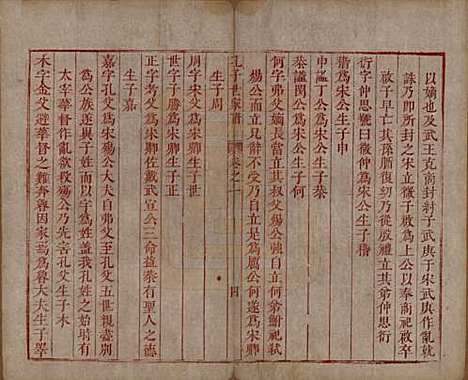 以嫡也及武王克商封紂子武庚于宋武庚作亂就
誅乃即所封之宋立微子啟爲上公以奉商祀啟卒
啟子早亡其孫腯復弱乃從殷禮立其弟仲思衍
衍字仲思號曰微仲爲宋公生子稽
稽爲宋公生子申
申諡丁公爲宋公生子恭
恭諡閔公爲宋公生子何
何字弗父嫡長當立其叔父煬公弛自立何弟鮒祀弒
煬公而立兄辭不受乃自立是爲厲公何遂爲宋卿
孔子世家譜 卷之一 四
生子周
周字宋父爲宋卿生子世
世字子勝爲宋卿生子正
正字考父爲宋卿佐戴武宣公三命益恭有人之德
生子嘉
嘉字孔父爲宋公大夫自弗父至孔父五世親盡別
爲公族遂與子姓而以孔爲姓蓋我孔姓之始時有
太宰華督作亂欲弒殤公乃先害孔父生子木
木字金父避華督之難奔魯因家焉爲魯大夫生子睪